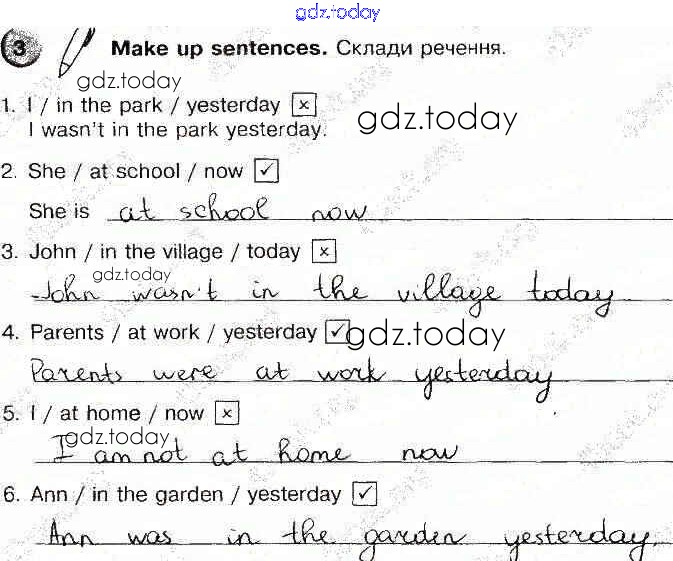 gdz.today
3 Make up sentences. Склади речення.
gdz.today
1. I / in the park / yesterday ☒
gdz.today
I wasn't in the park yesterday.
2. She / at school / now ☑
She is at school now
3. John / in the village / today ☒
gdz.today
John wasn't in the village today
4. Parents / at work / yesterday ☑
gdz.today
Parents were at work yesterday
5. I / at home / now ☒
gdz.today
I am not at home now
6. Ann / in the garden / yesterday ☑
Ann was in the garden yesterday.